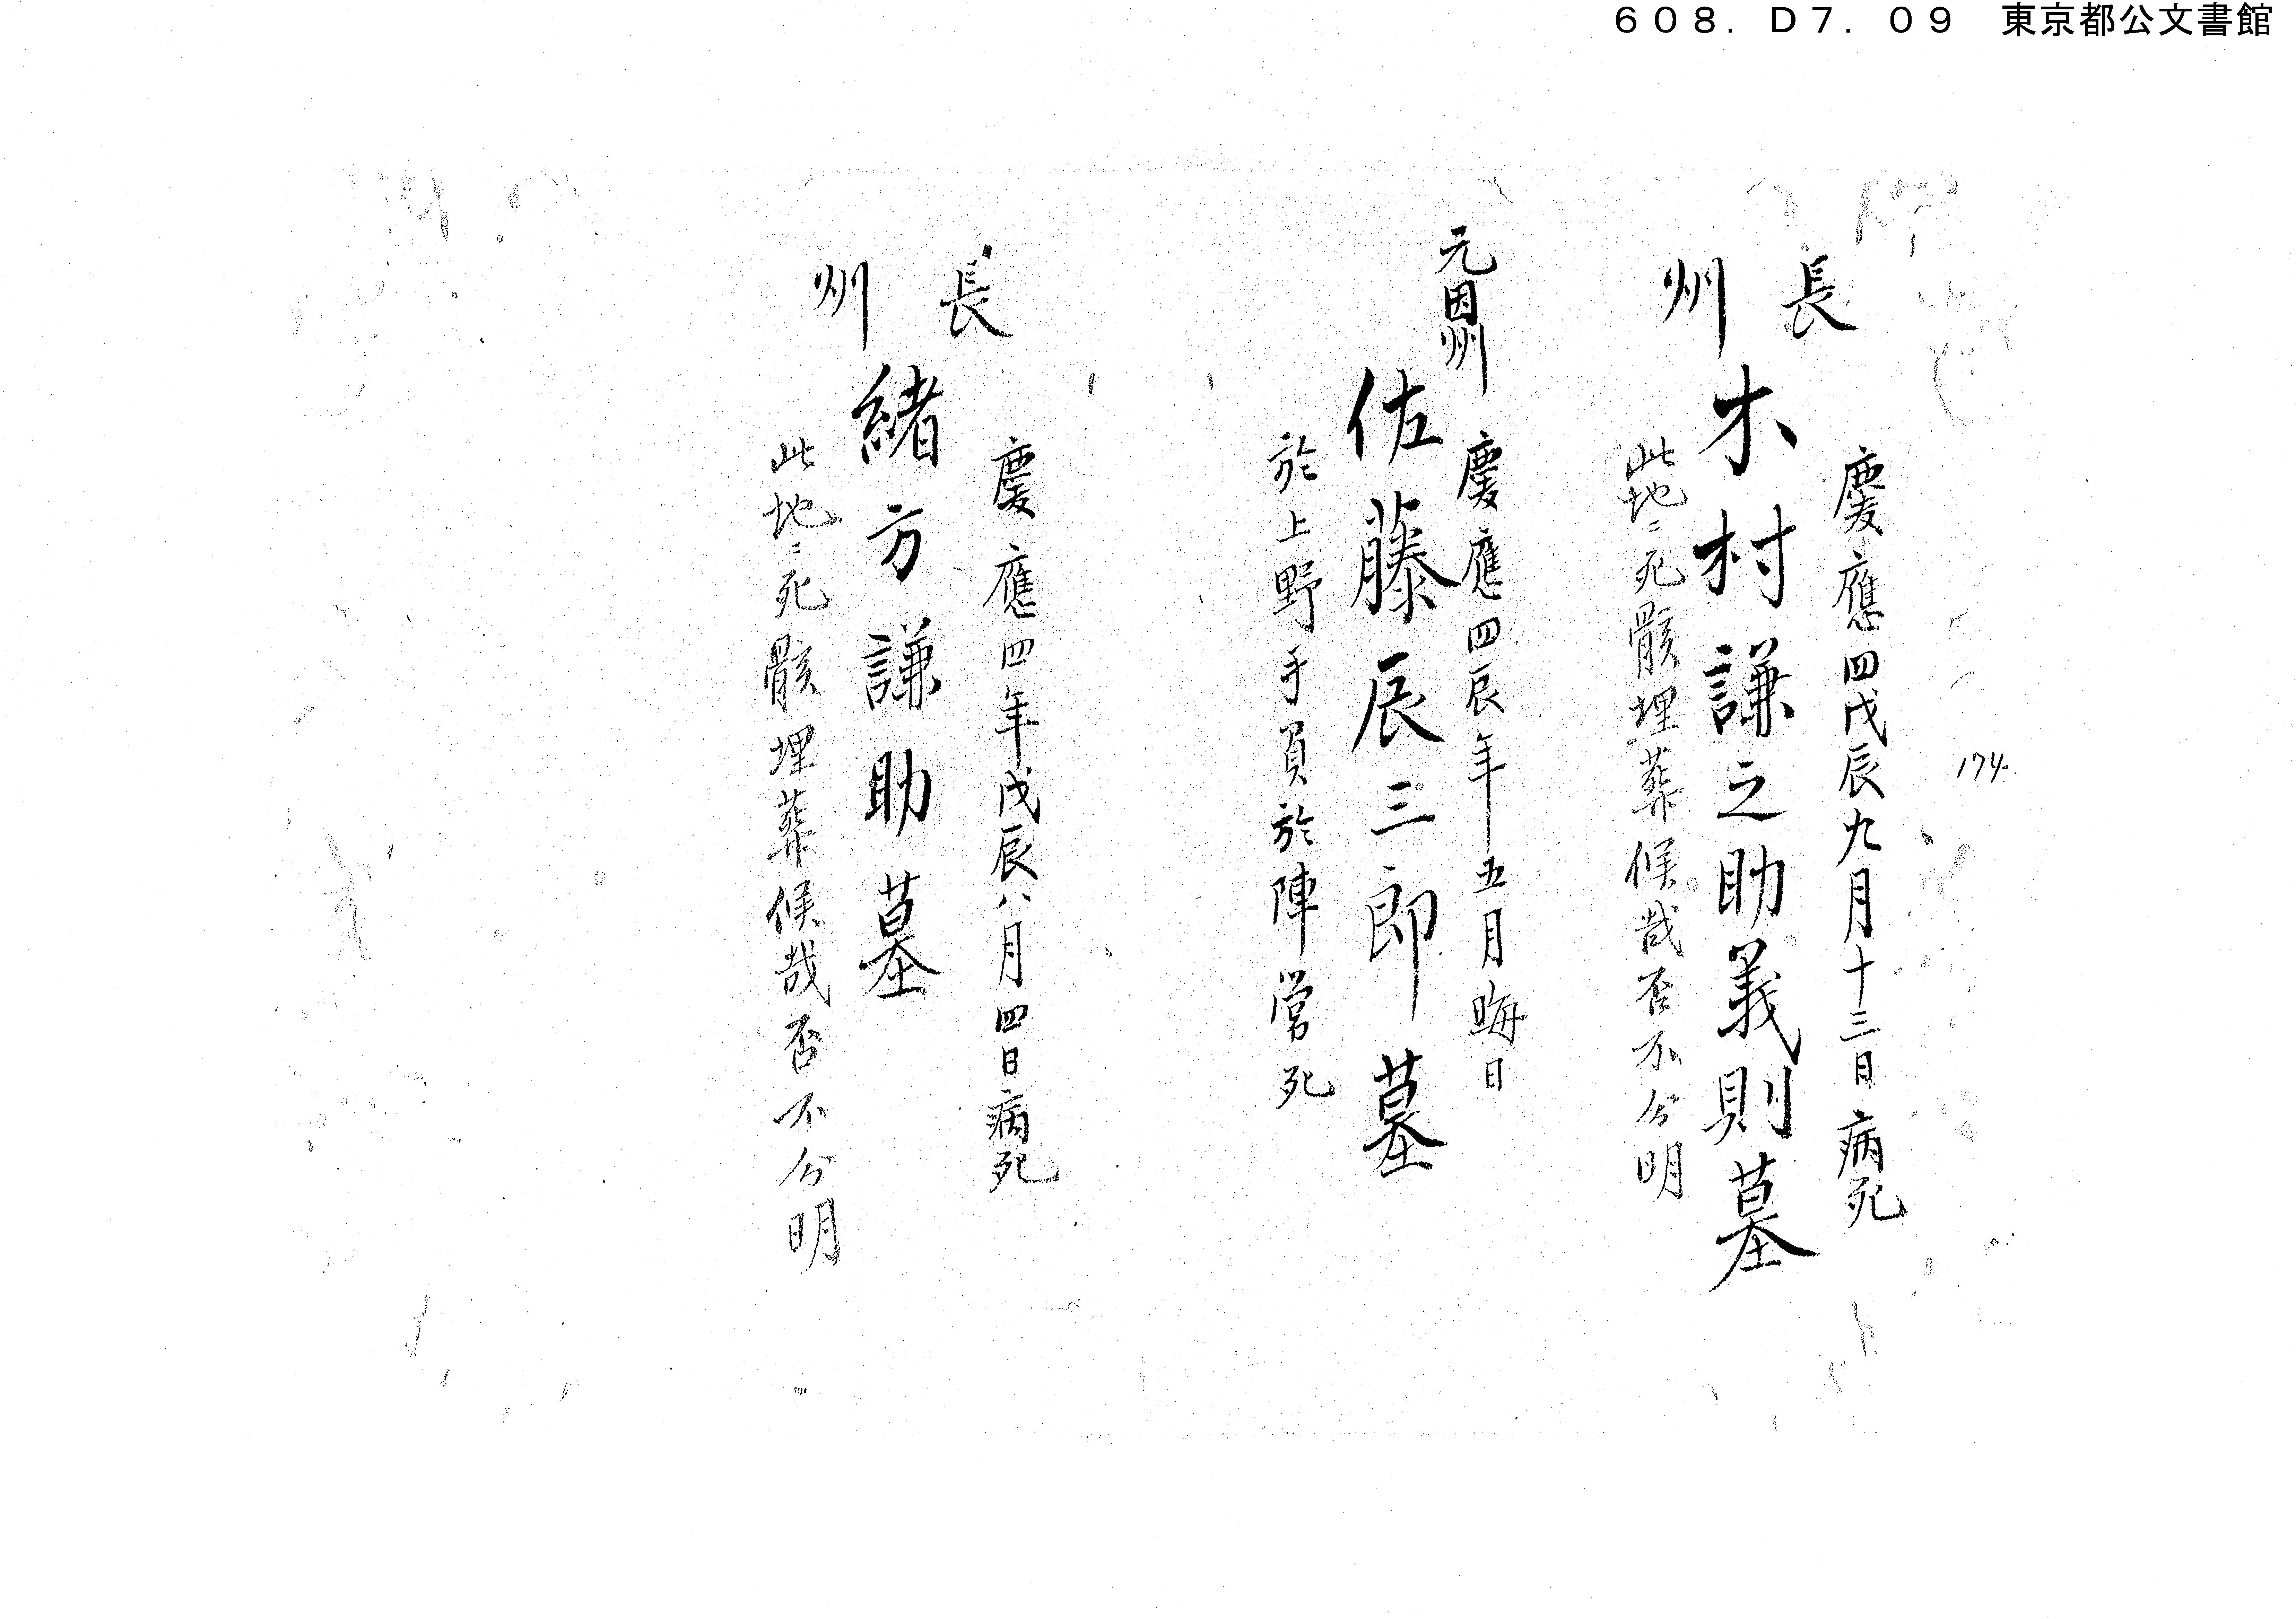 608.D7.09 東京都公文書館
174.
長州
慶應四戊辰九月十三日病死
木村謙之助義則墓
此地ニ死骸埋葬候哉否不分明
元因州
慶應四辰年五月晦日
佐藤辰三郎墓
於上野手負於陣営死
長州
慶應四年戊辰八月四日病死
緒方謙助墓
此地ニ死骸埋葬候哉否不分明